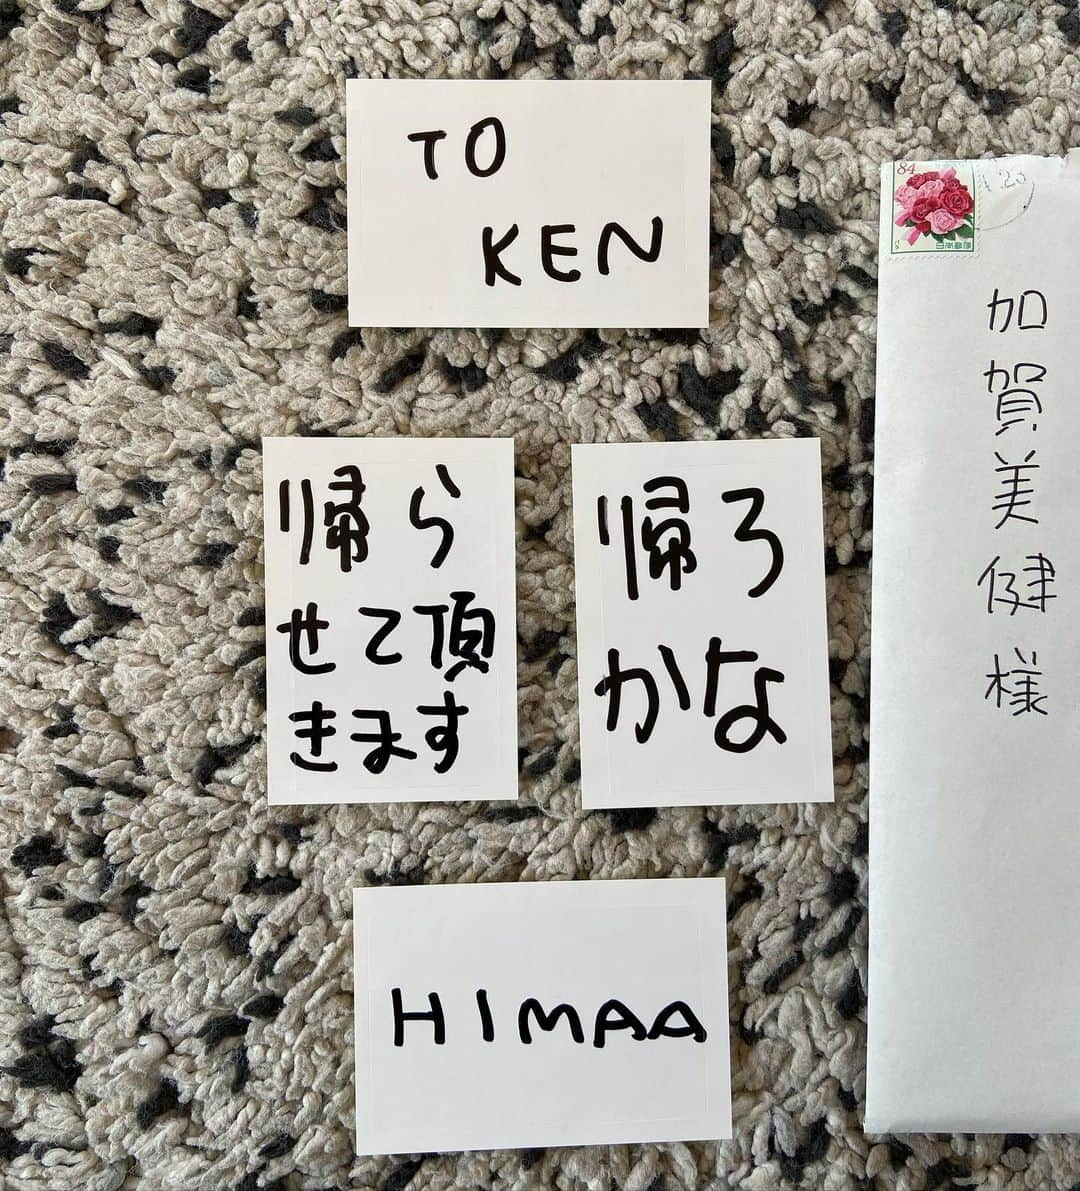 TO
KEN
帰ら
せて頂
きます
帰ろ
かな
HIMAA
84
日本郵便
加賀美健様